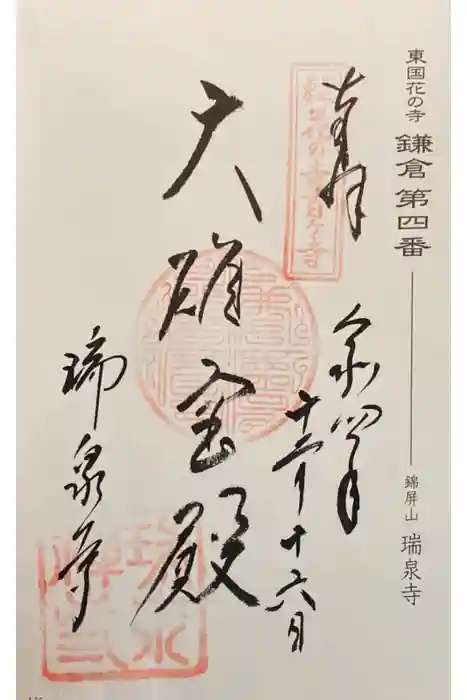 東国花の寺 鎌倉第四番 錦屏山 瑞泉寺
東国花の寺百ヶ寺
奉拝
令和四年
十二月十六日
大雄宝殿
瑞泉寺